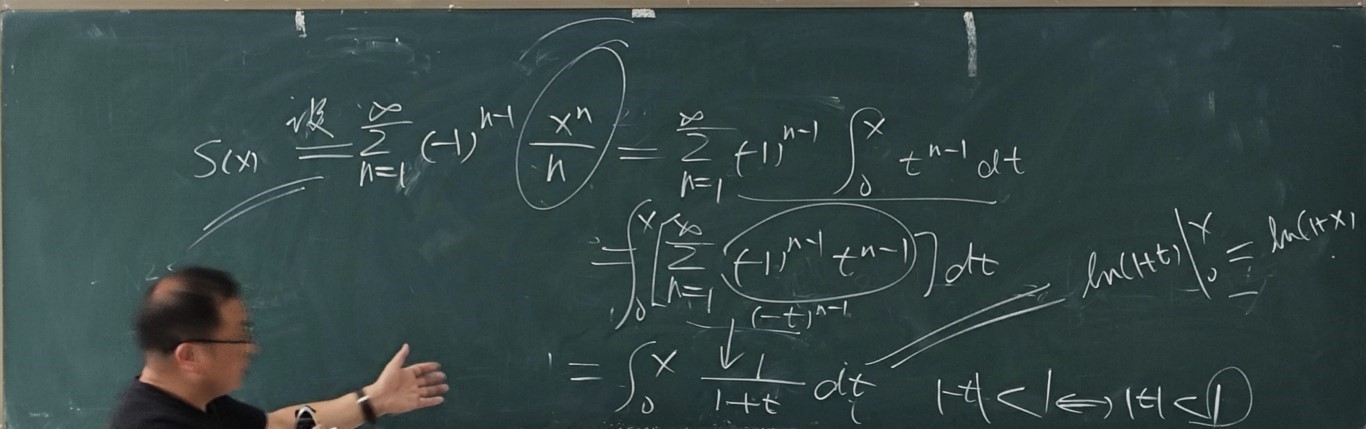 S(x) 设= ∑_{n=1}^{∞} (-1)^{n-1} x^n/n = ∑_{n=1}^{∞} (-1)^{n-1} ∫_0^x t^{n-1} dt
= ∫_0^x [∑_{n=1}^{∞} (-1)^{n-1} t^{n-1}] dt
ln(1+t)|_0^x = ln(1+x).
(-t)^{n-1}
= ∫_0^x 1/(1+t) dt
|-t| < 1 ⟺ |t| < 1